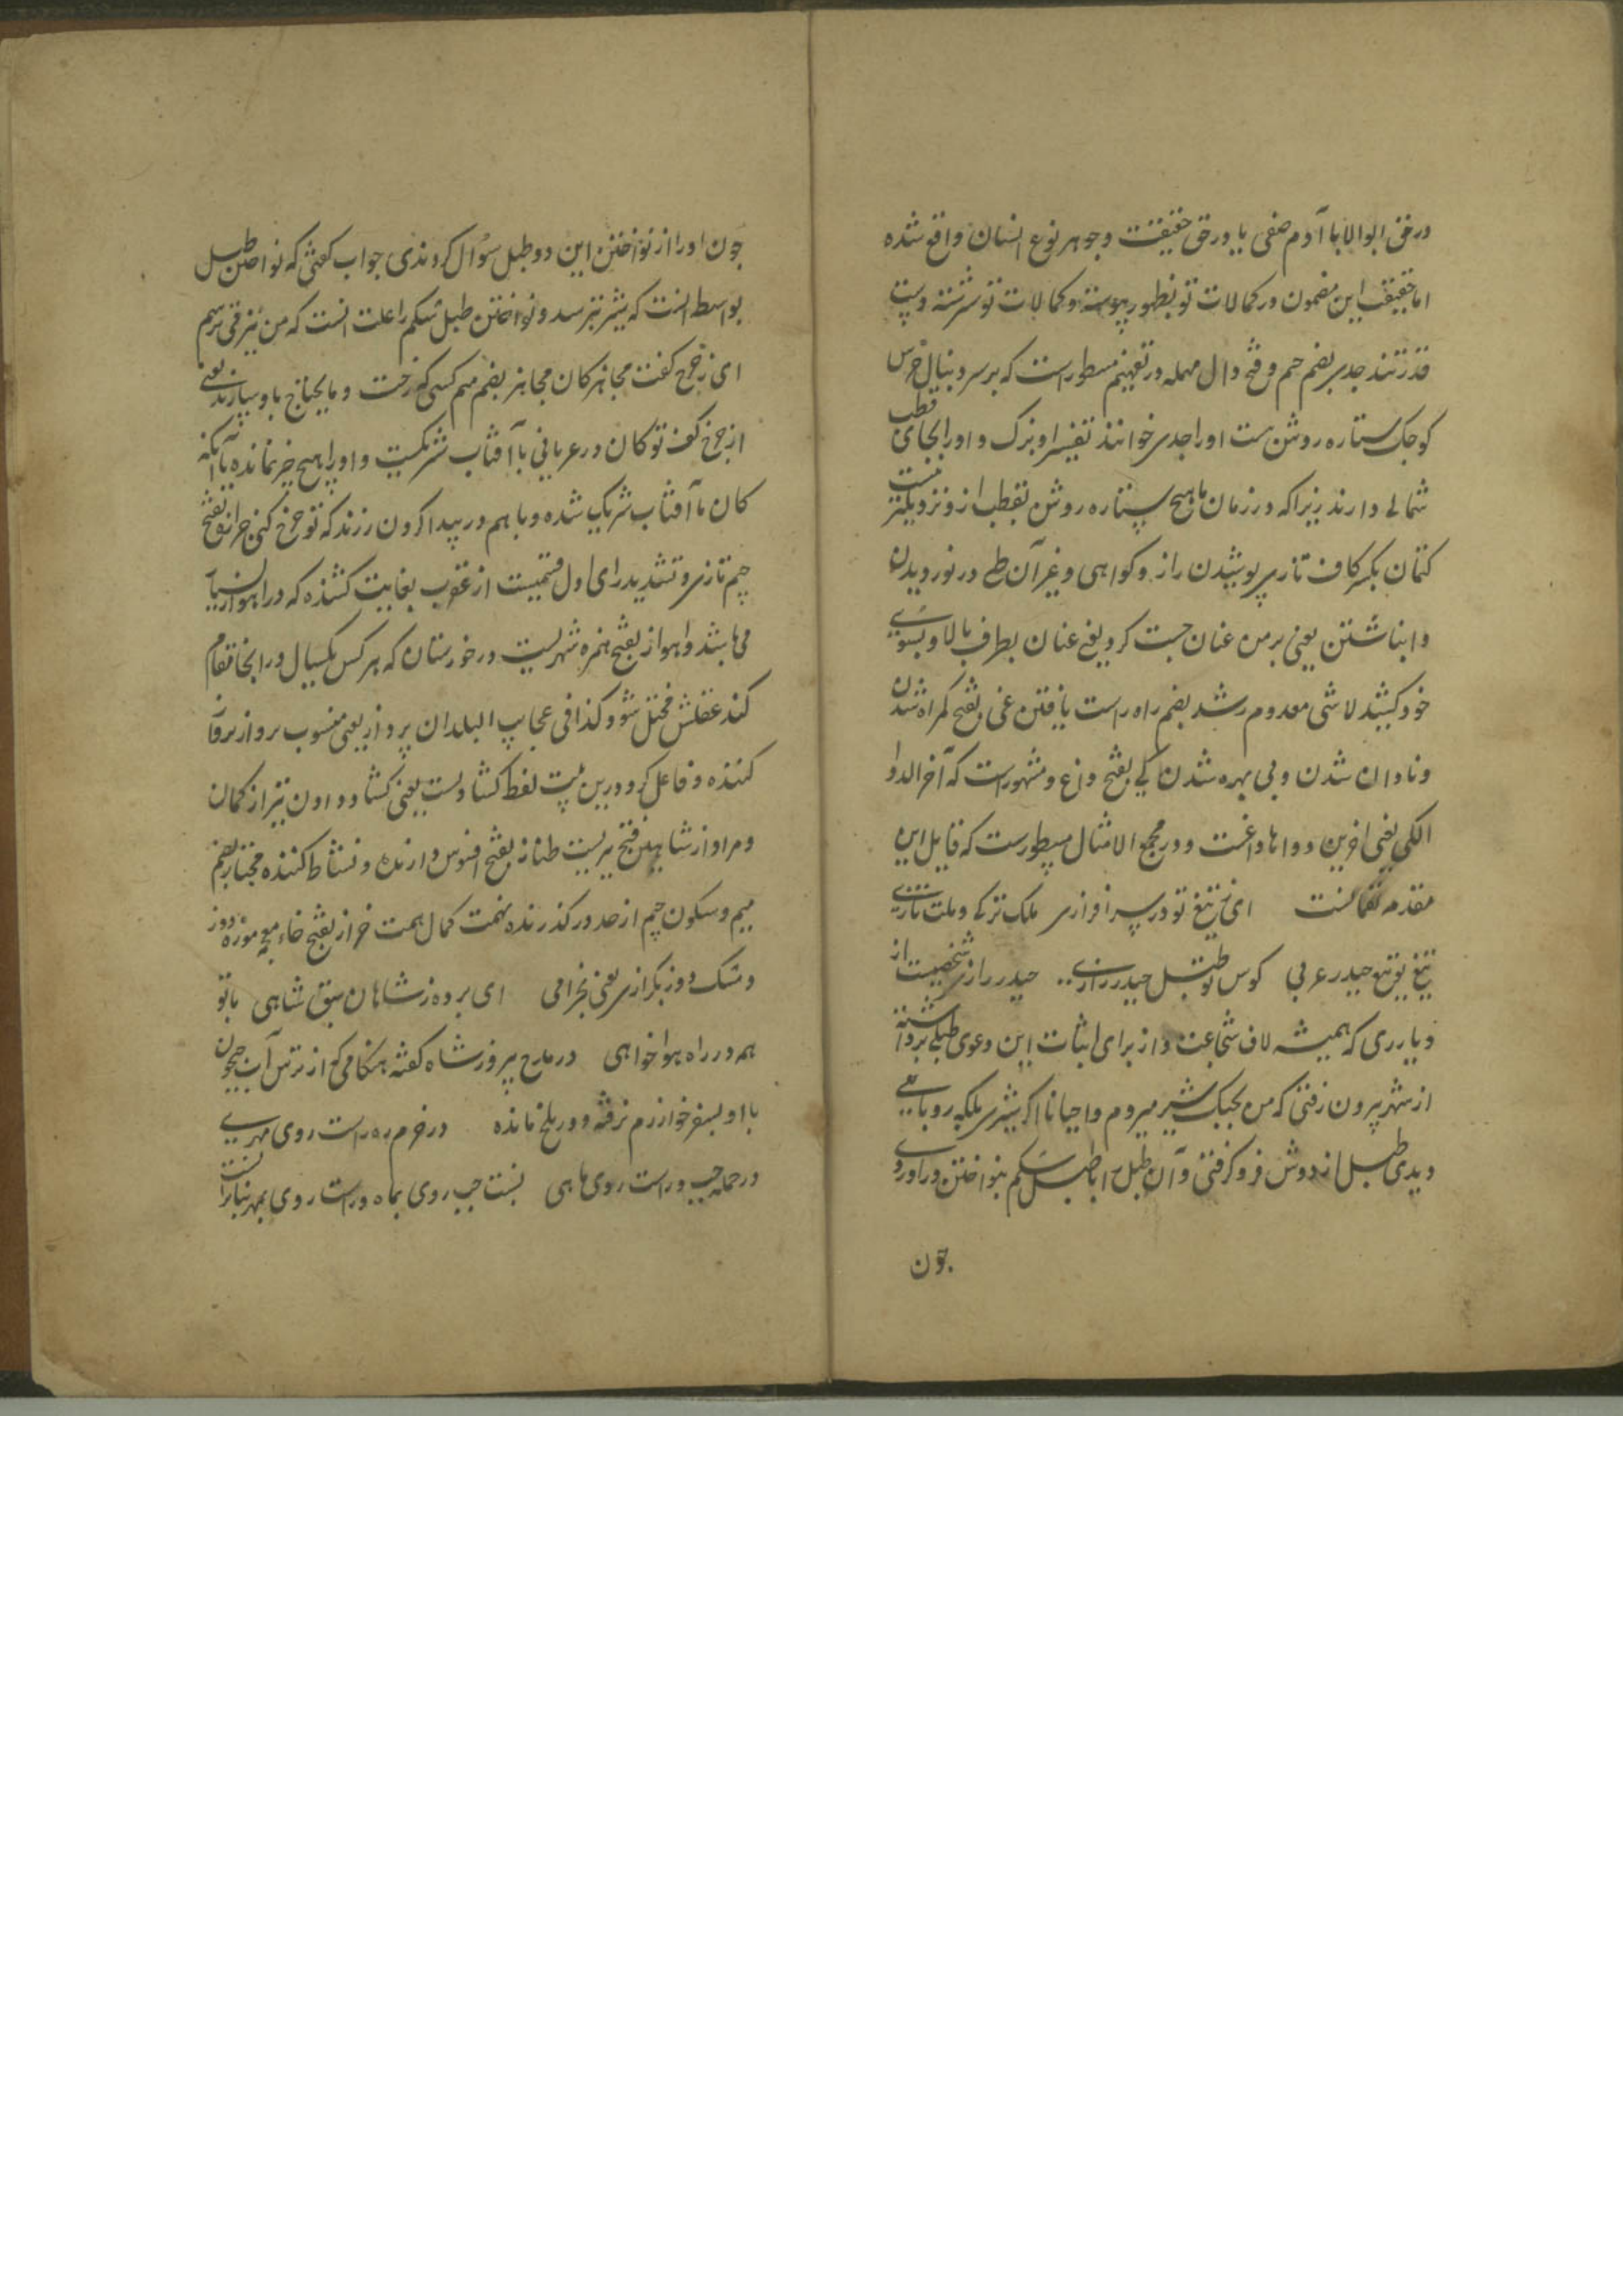 در حق ابوالابا آدم صفی یا در حق حقیقت و جوهر نوع انسان واقع شده
اما حقیقت این مضمون در کمالات تو بظهور پیوسته و کمالات تو سرشته دست
قدرتند جدی بضم جیم و فتح دال مهمله در تفهیم مسطورست که بر سر دنبال خرس
کوچک ستاره روشن ست او را جدی خوانند تفسیر او بزک و او را بجای قطب
شمالی دارند زیرا که در زمان ما هیچ ستاره روشن بقطب ازو نزدیکتر نیست
کتمان بکسر کاف تازی پوشیدن راز و کواهی و غیر آن طی در نوردیدن
و انباشتن یعنی بر من عنان جست کرد یعنی عنان بطرف بالا و بسوی
خود کشید لاشی معدوم رشد بضم راه راست یافتن غی بفتح کمراه شدن
و نادان شدن و بی بهره شدن کی بفتح داغ و مشهورست که آخر الدوا
الکی یعنی آخرین دواها داغست و در مجمع الامثال مسطورست که قایل این
مقدمه لقمانست ای تیغ تو در سر افرازی ملک ترکی و ملت تازی
تیغ تو تیغ حیدر عربی کوس تو طبل حیدر رازی حیدر رازی شخصیست از
دیار ری که همیشه لاف شجاعت زد از برای اثبات این دعوی طبلی برداشته
از شهر بیرون رفتی که من بجنک شیر میروم و احیانا اکر شیری بلکه روباهی
دیدی طبل از دوش فرو کرفتی و آن طبل را با طبل شکم بنواختن در آوردی
چون
چون او را از نواختن این دو طبل سؤال کردندی جواب کفتی که نواختن طبل
بواسطه انست که شیر بترسد و نواختن طبل شکم را علت انست که من نیز می ترسم
ای ز چرخ کفت مجاهز کان مجاهز بضم میم کسی که رخت و ما یحتاج باو سپارند یعنی
از چرخ کف تو کان در عریانی با آفتاب شریکست و او را هیچ چیز نمانده یا آنکه
کان با آفتاب شریک شده و با هم در پیدا کردن زرند که تو خرج کنی جراره بفتح
جیم تازی و تشدید رای اول قسمیست از عقرب بغایت کشنده که در اهواز بسیار
می باشد و اهواز بفتح همزه شهریست در خوزستان که هر کس یکسال در انجا مقام
کند عقلش مختل شود کذا فی عجایب البلدان پروازی یعنی منسوب بر
کننده و فاعل کرد درین بیت لفظ کشادست یعنی کشاد دادن تیر از کمان
و مراد از شاهین فتح تیریست طناز بفتح افسوس دارنده و نشاط کننده مجتاز بضم
میم و سکون جیم از حد در کذرنده نهمت کمال همت خراز بفتح خاء معجمه موزه دوز
و مشک دوز بکرازی یعنی بخرامی ای برده ز شاهان سبق شاهی با تو
همه در راه هواخواهی در مدح پیروز شاه کفته هنکامی که از ترس آب جیحون
با او بسفر خوارزم نرفته و در بلخ مانده در خرم ره راست روی مهری
در حمله چپ و راست روی ماهی نسبت چپ روی بماه و راست روی بمهر بنا بر انست